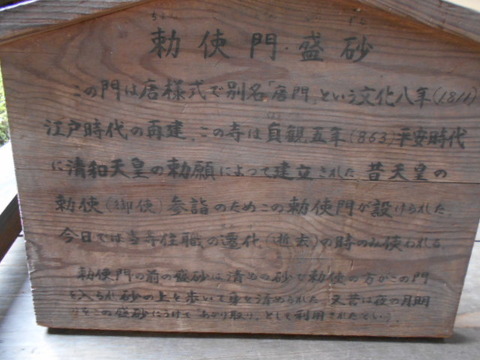 勅使門・盛砂
この門は唐様式で別名「唐門」という文化八年(1811)
江戸時代の再建、この寺は貞観五年(863)平安時代
に清和天皇の勅願によって建立された 昔天皇の
勅使(御使)参詣のためこの勅使門が設けられた
今日では当寺住職の遷化(逝去)の時のみ使われる。
勅使門の前の盛砂は清めの砂で勅使の方がこの門
を入られ砂の上を歩いて身を清められた 又昔は夜の月明
りをこの盛砂にうけて「あかり取り」として利用されたという。